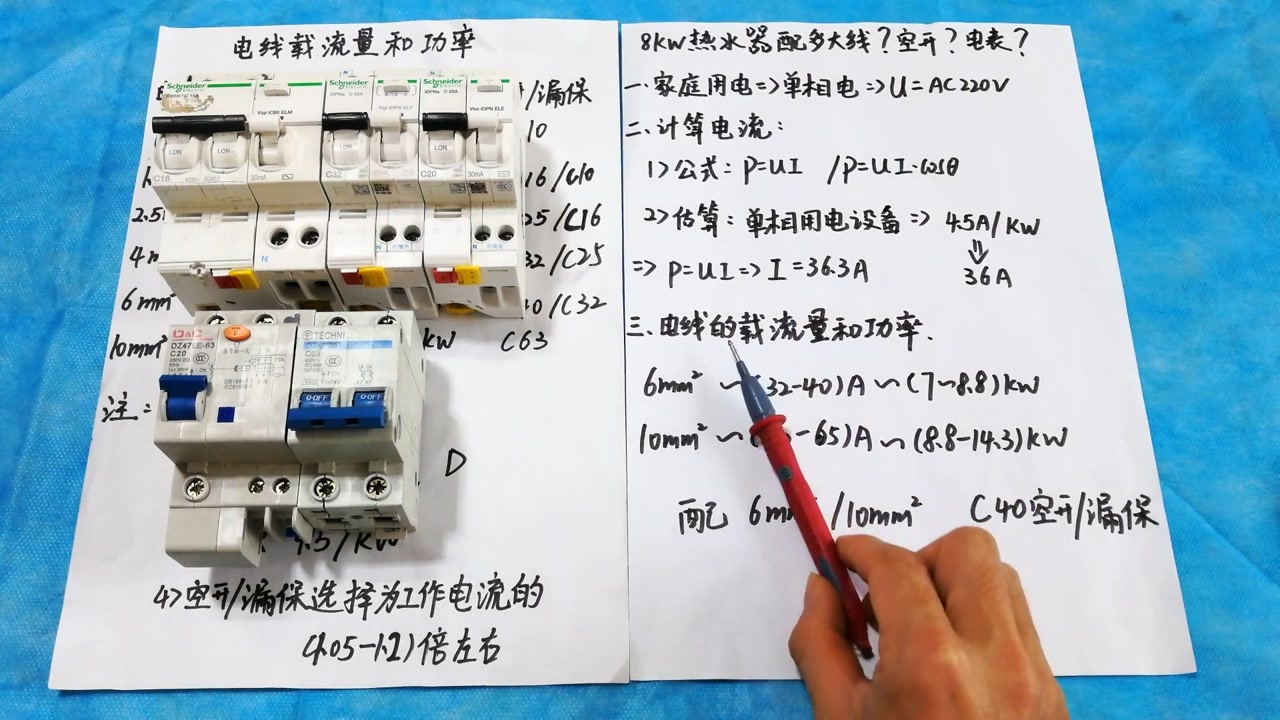 电线载流量和功率
/漏保
10
16/C10
2.5
25/C16
4m
32/C25
6mm²
40/C32
10mm²
kW C63
注:
D
4.5/KW
4>空开/漏保选择为工作电流的
(1.05-1.2)倍左右
Schneider
Electric
Vigi iC65 ELM
LON
LON
C16
6000
30mA
Schneider
Electric
Vigi iDPN ELE
LON
C32
30mA
Schneider
Electric
iDPNa C 20A
Vigi iDPN ELE
LON
C20
30mA
N
N
N
D&C
DZ47LE-63
C20
TECHNI
C63
O-OFF
O-OFF
8KW热水器配多大线?空开?电表?
一.家庭用电=>单相电=>U=AC220V
二.计算电流:
1>公式: P=UI /P=UI·cosθ
2>估算: 单相用电设备=> 4.5A/KW
=> P=UI=> I=36.3A 36A
三.电线的载流量和功率.
6mm² ~(32-40)A~(7~8.8)KW
10mm² ~ -65)A~(8.8-14.3)KW
配 6mm²/10mm² C40空开/漏保